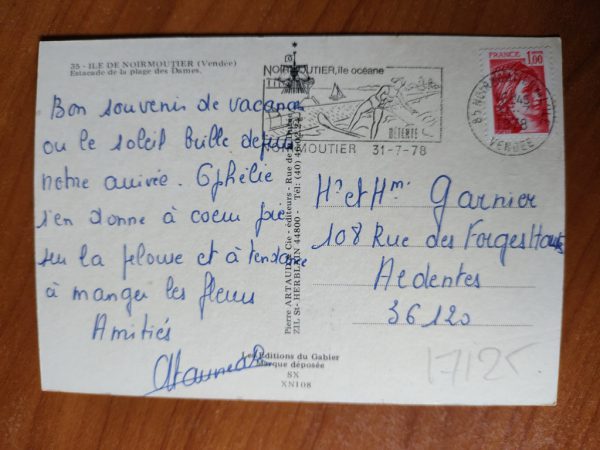 35 - ILE DE NOIRMOUTIER (Vendée)
Estacade de la plage des Dames.
Bon souvenir de vacances
ou le soleil brille depuis
notre arrivée. Ophélie
s'en donne à coeur joie
sur la pelouse et à tendance
à manger les fleurs
Amitiés
Pierre ARTAUD & Cie - éditeurs - Rue de la
ZIL St-HERBLAIN 44800 - Tél: (40)
Les Editions du Gabier
Marque déposée
SX
XN108
NOIRMOUTIER, île océane
DÉTENTE
NOIRMOUTIER 31-7-78
FRANCE 1,00
VENDEE
Mr et Mme Garnier
108 Rue des Forges Hautes
Ardentes
36120
17125